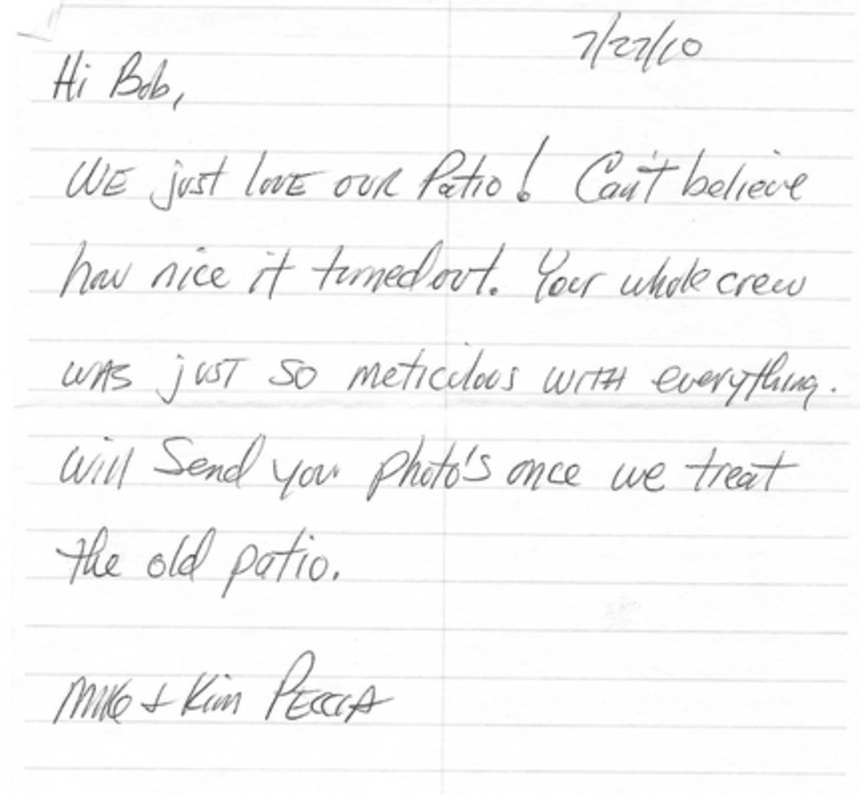 7/27/10
Hi Bob,
WE just love our Patio! Can't believe
how nice it turned out. Your whole crew
was just so meticulous with everything.
Will Send you photo's once we treat
the old patio.
Mike + Kim Peccia